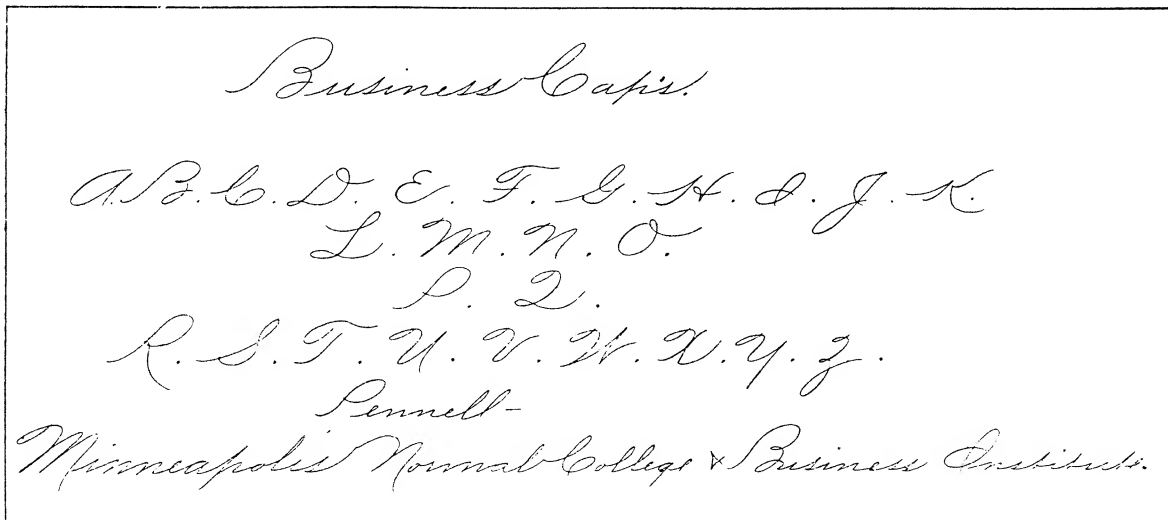 Business Cap's.
A. B. C. D. E. F. G. H. I. J. K.
L. M. N. O.
P. Q.
R. S. T. U. V. W. X. Y. Z.
Pennell-
Minneapolis Normal College & Business Institute.